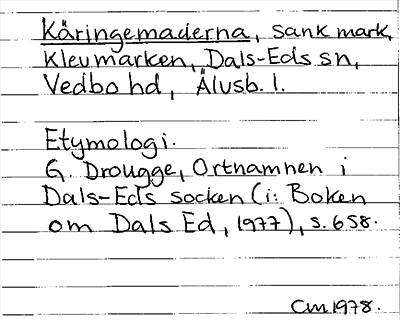 Käringemaderna, sank mark,
Klevmarken, Dals-Eds sn,
Vedbo hd, Älvsb. l.
Etymologi.
G. Drougge, Ortnamnen i
Dals-Eds socken (i: Boken
om Dals Ed, 1977), s. 658.
CM 1978.